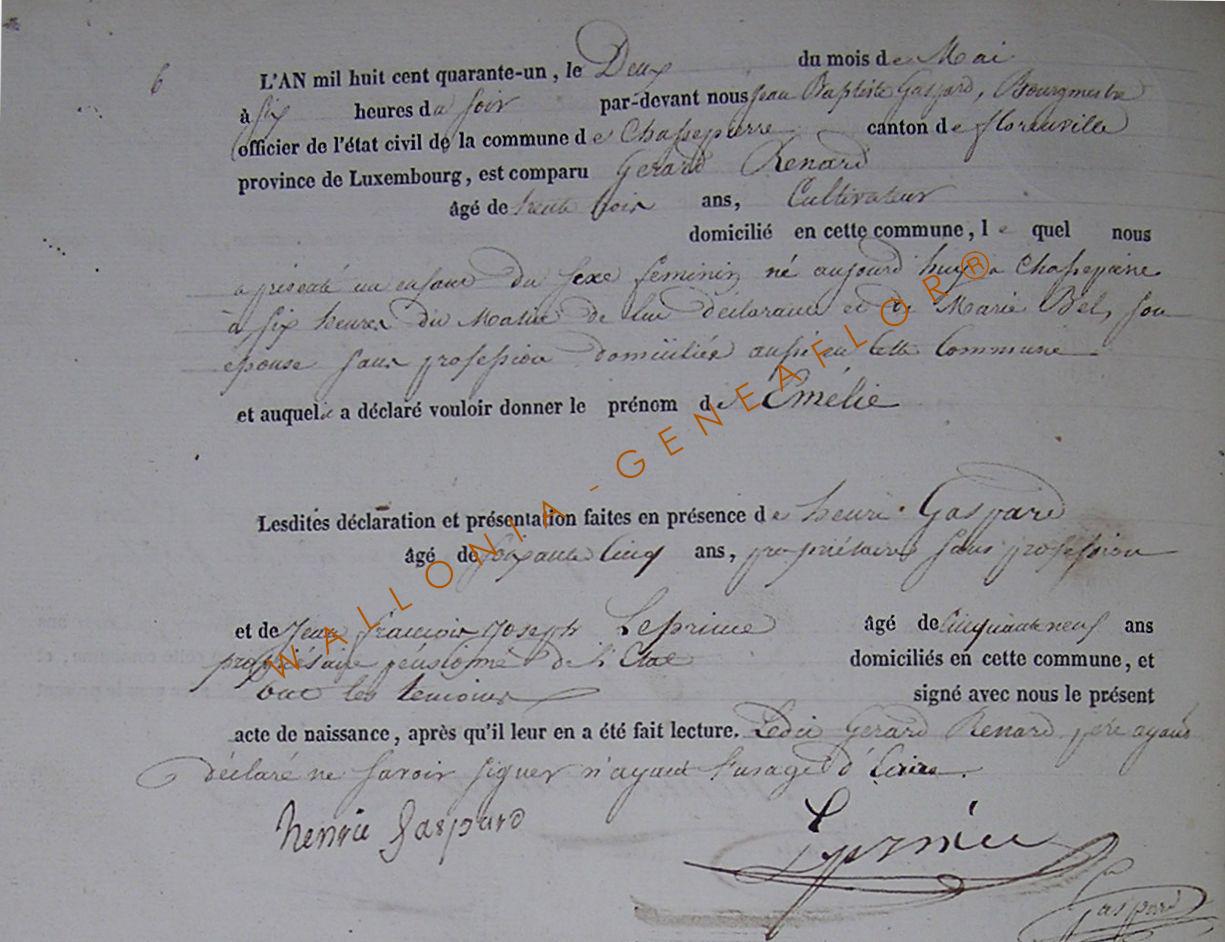 6
L'AN mil huit cent quarante-un, le Deux du mois de Mai
à six heures du soir par-devant nous Jean Baptiste Gaspard, Bourgmestre
officier de l'état civil de la commune de Chassepierre canton de florenville
province de Luxembourg, est comparu Gerard Renard
âgé de trente trois ans, Cultivateur
domicilié en cette commune, le quel nous
a présenté un enfant du sexe feminin né aujourd'huy a Chassepierre
à six heures du Matin de lui déclarant et de Marie Bel, son
épouse sans profession domiciliés aussi en cette Commune
et auquel a déclaré vouloir donner le prénom de Emélie
Lesdites déclaration et présentation faites en présence de henri Gaspard
âgé de soixante cinq ans, propriétaire sans profession
et de Jean françois Joseph Leprince âgé de Cinquante neuf ans
propriétaire pensionné de l'Etat domiciliés en cette commune, et
ont les temoins signé avec nous le présent
acte de naissance, après qu'il leur en a été fait lecture. Ledit Gerard Renard père ayant
déclaré ne savoir signer n'ayant l'usage d'écrire.
henrie Gaspard
Gaspard
WALLONIA - GENEAFLOR®